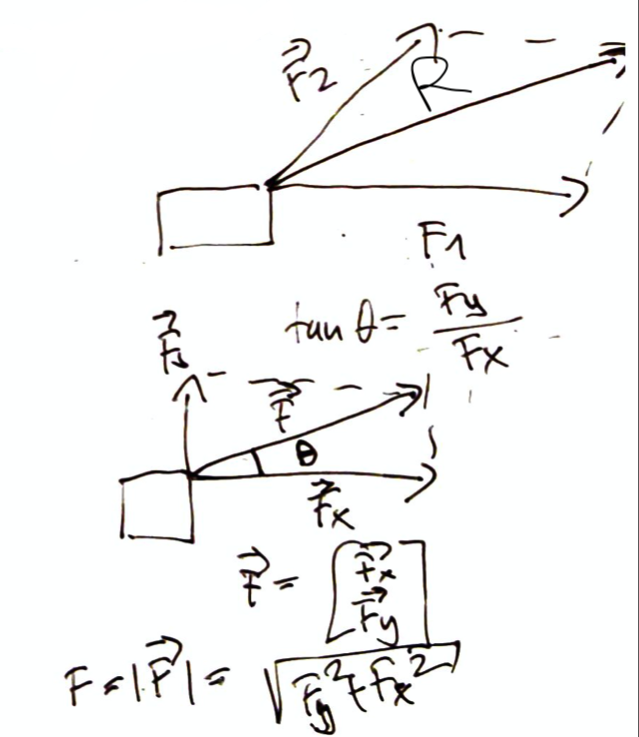 F⃗2
R
F1
tan θ = Fy/Fx
F⃗y
F⃗
θ
F⃗x
F⃗ = [F⃗x
F⃗y]
F = |F⃗| = √(Fy² + Fx²)